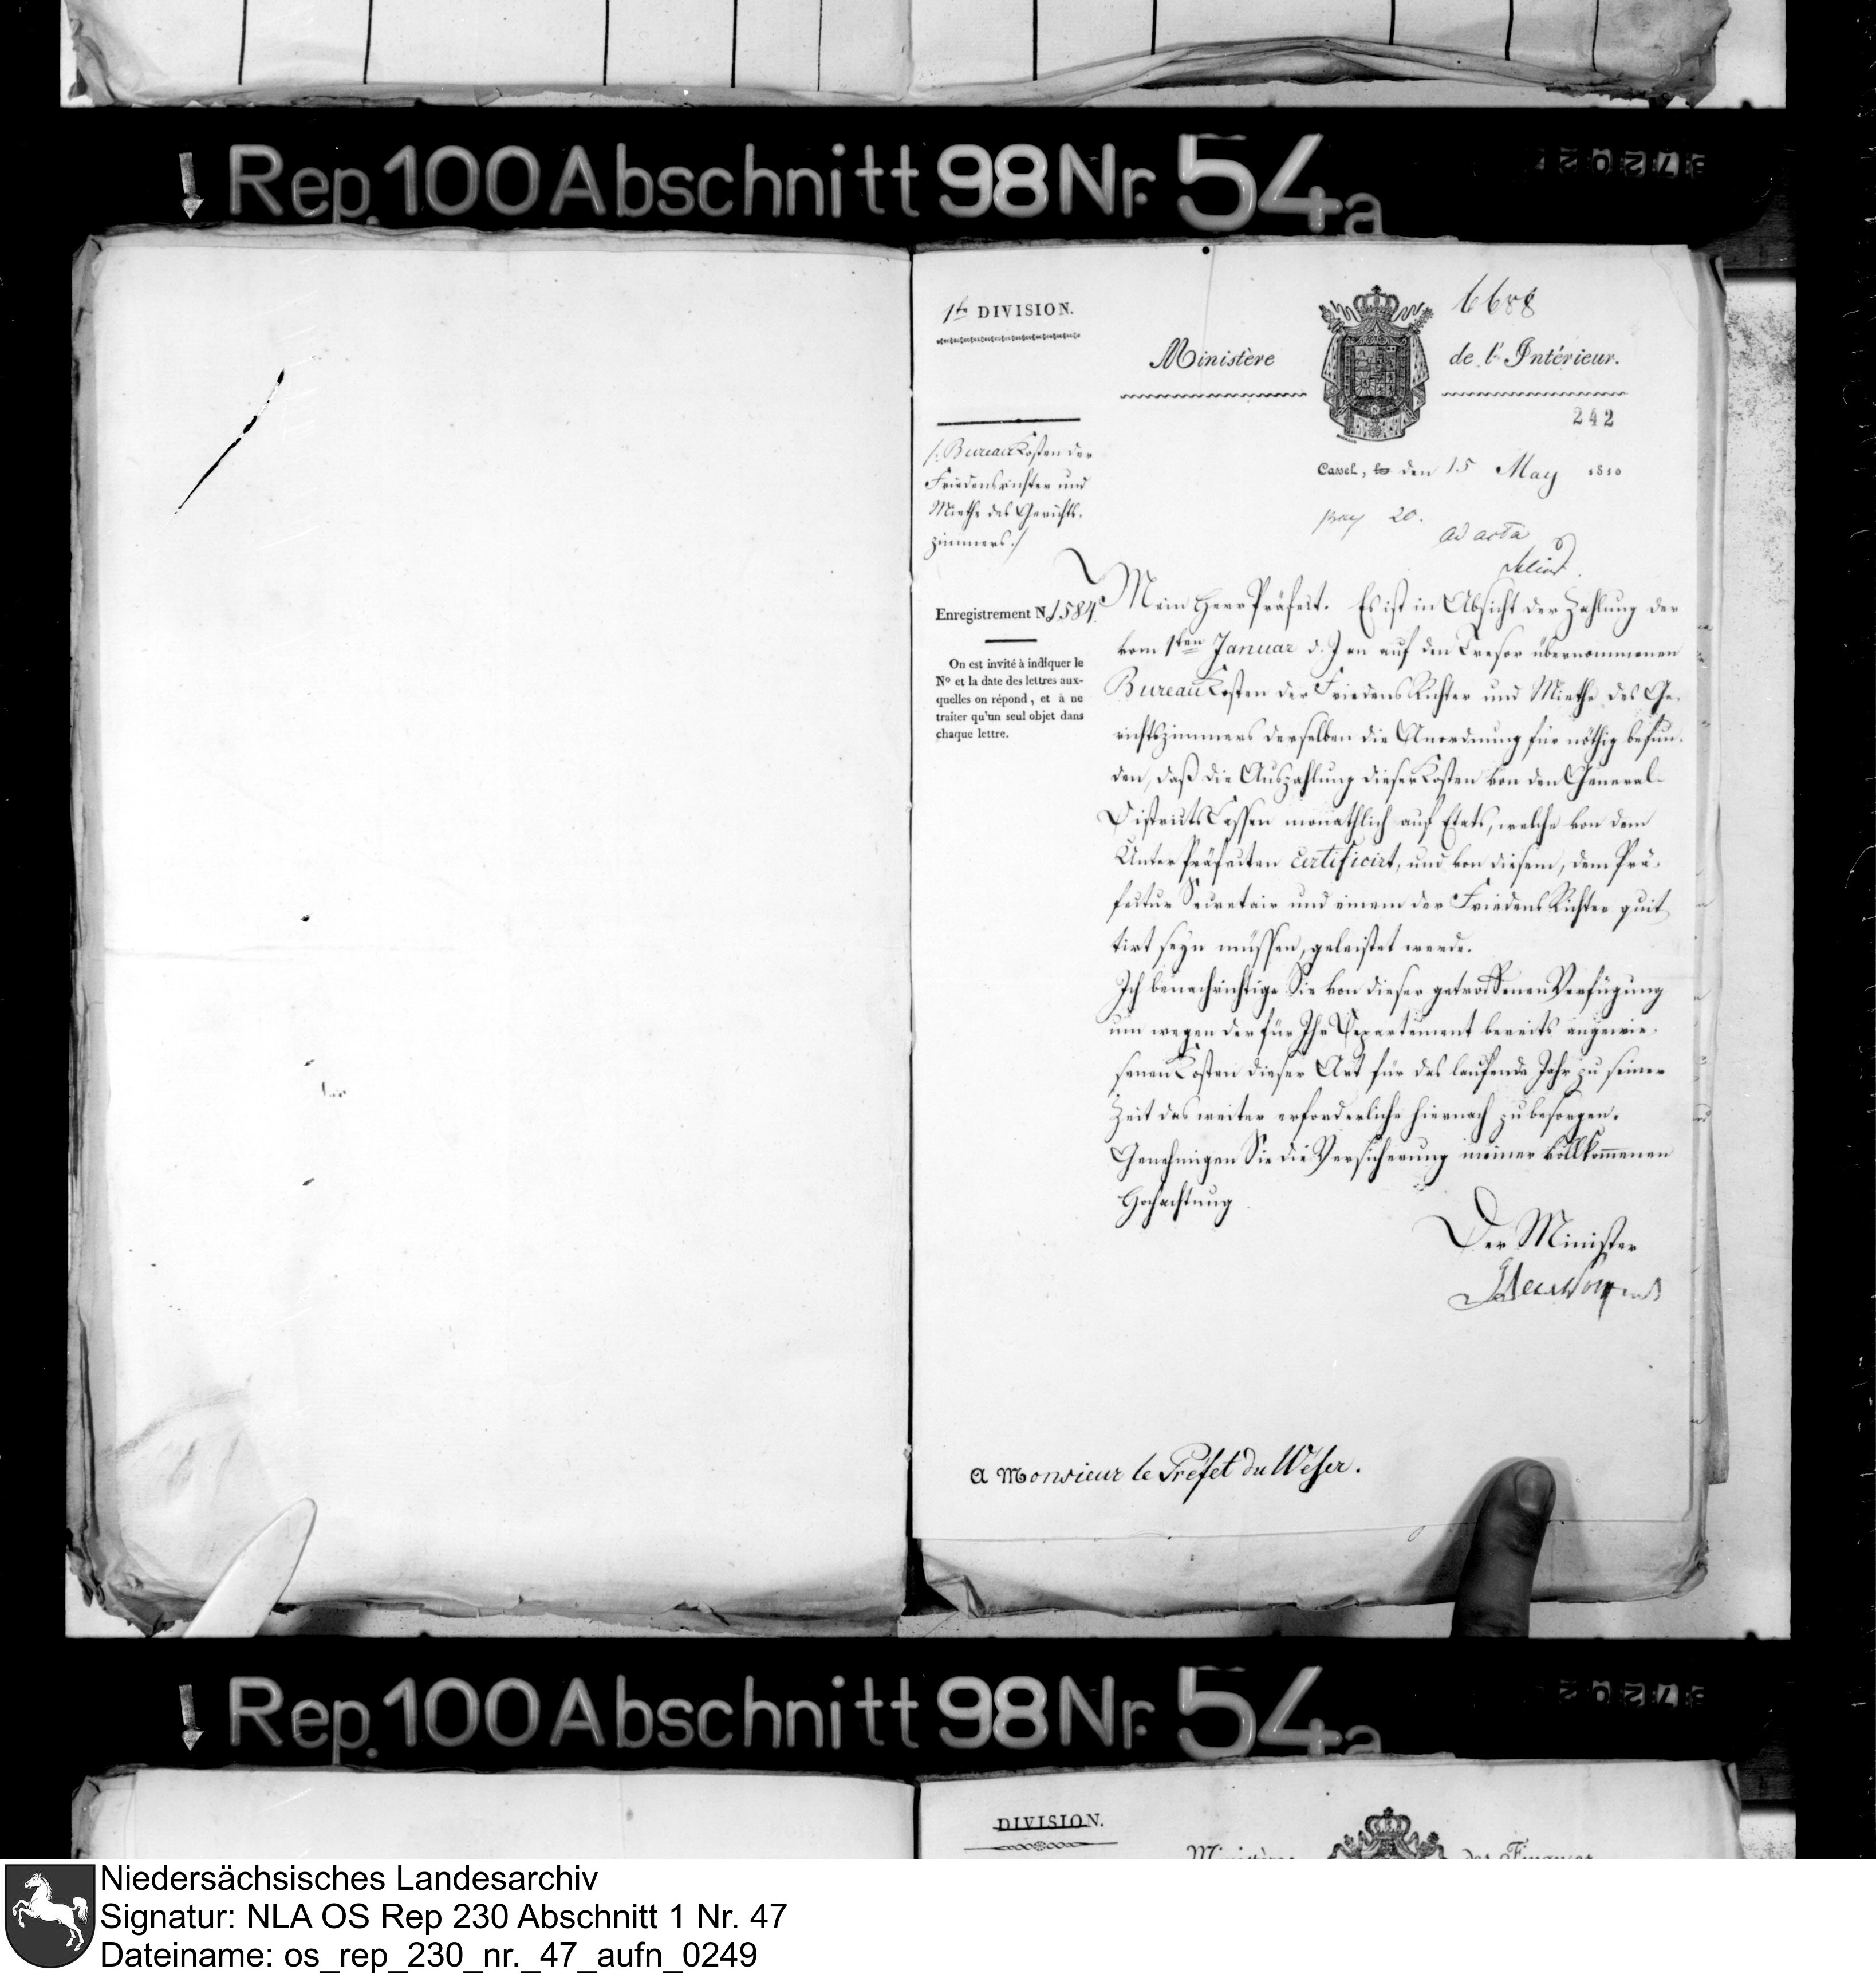 Rep. 100 Abschnitt 98 Nr. 54a
1te DIVISION.
6688
Ministère de l'Intérieur.
242
Cassel, le den 15 May 1810
/: Bureaukosten der
Friedensrichter und
Miethe des Gerichts-
zimmers :/
pray 20.
ad acta
Enregistrement N. 1584.
On est invité à indiquer le
No et la date des lettres aux-
quelles on répond, et à ne
traiter qu'un seul objet dans
chaque lettre.
Mein Herr Präfect. Es ist in Absicht der Zahlung der
vom 1ten Januar d. J an auf den Tresor übernommenen
Bureaukosten der Friedens Richter und Miethe des Ge-
richtszimmers derselben die Anordnung für nöthig befun-
den, daß die Auszahlung dieser Kosten von den General-
Districts Cassen monathlich auf Etats, welche von dem
Unter Präfecten certificirt, und von diesem, dem Prä-
fectur Secretair und einem der Friedens Richter quit
tirt seyn müssen, geleistet werde.
Ich benachrichtige Sie von dieser getroffenen Verfügung
um wegen der für Ihr Departement bereits angewie-
senen Kosten dieser Art für das laufende Jahr zu seiner
Zeit das weiter erforderliche hiernach zu besorgen.
Genehmigen Sie die Versicherung meiner vollkommenen
Hochachtung
Der Minister
a Monsieur le Préfet du Weser.
Rep. 100 Abschnitt 98 Nr. 54a
DIVISION.
Ministère des Finances
Niedersächsisches Landesarchiv
Signatur: NLA OS Rep 230 Abschnitt 1 Nr. 47
Dateiname: os_rep_230_nr._47_aufn_0249